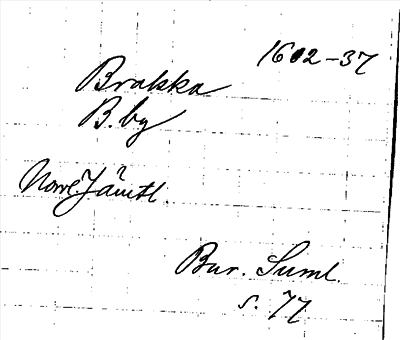 1602-37
Brakka
B.by
Norre Jämtl.
Bur. Suml.
s. 77